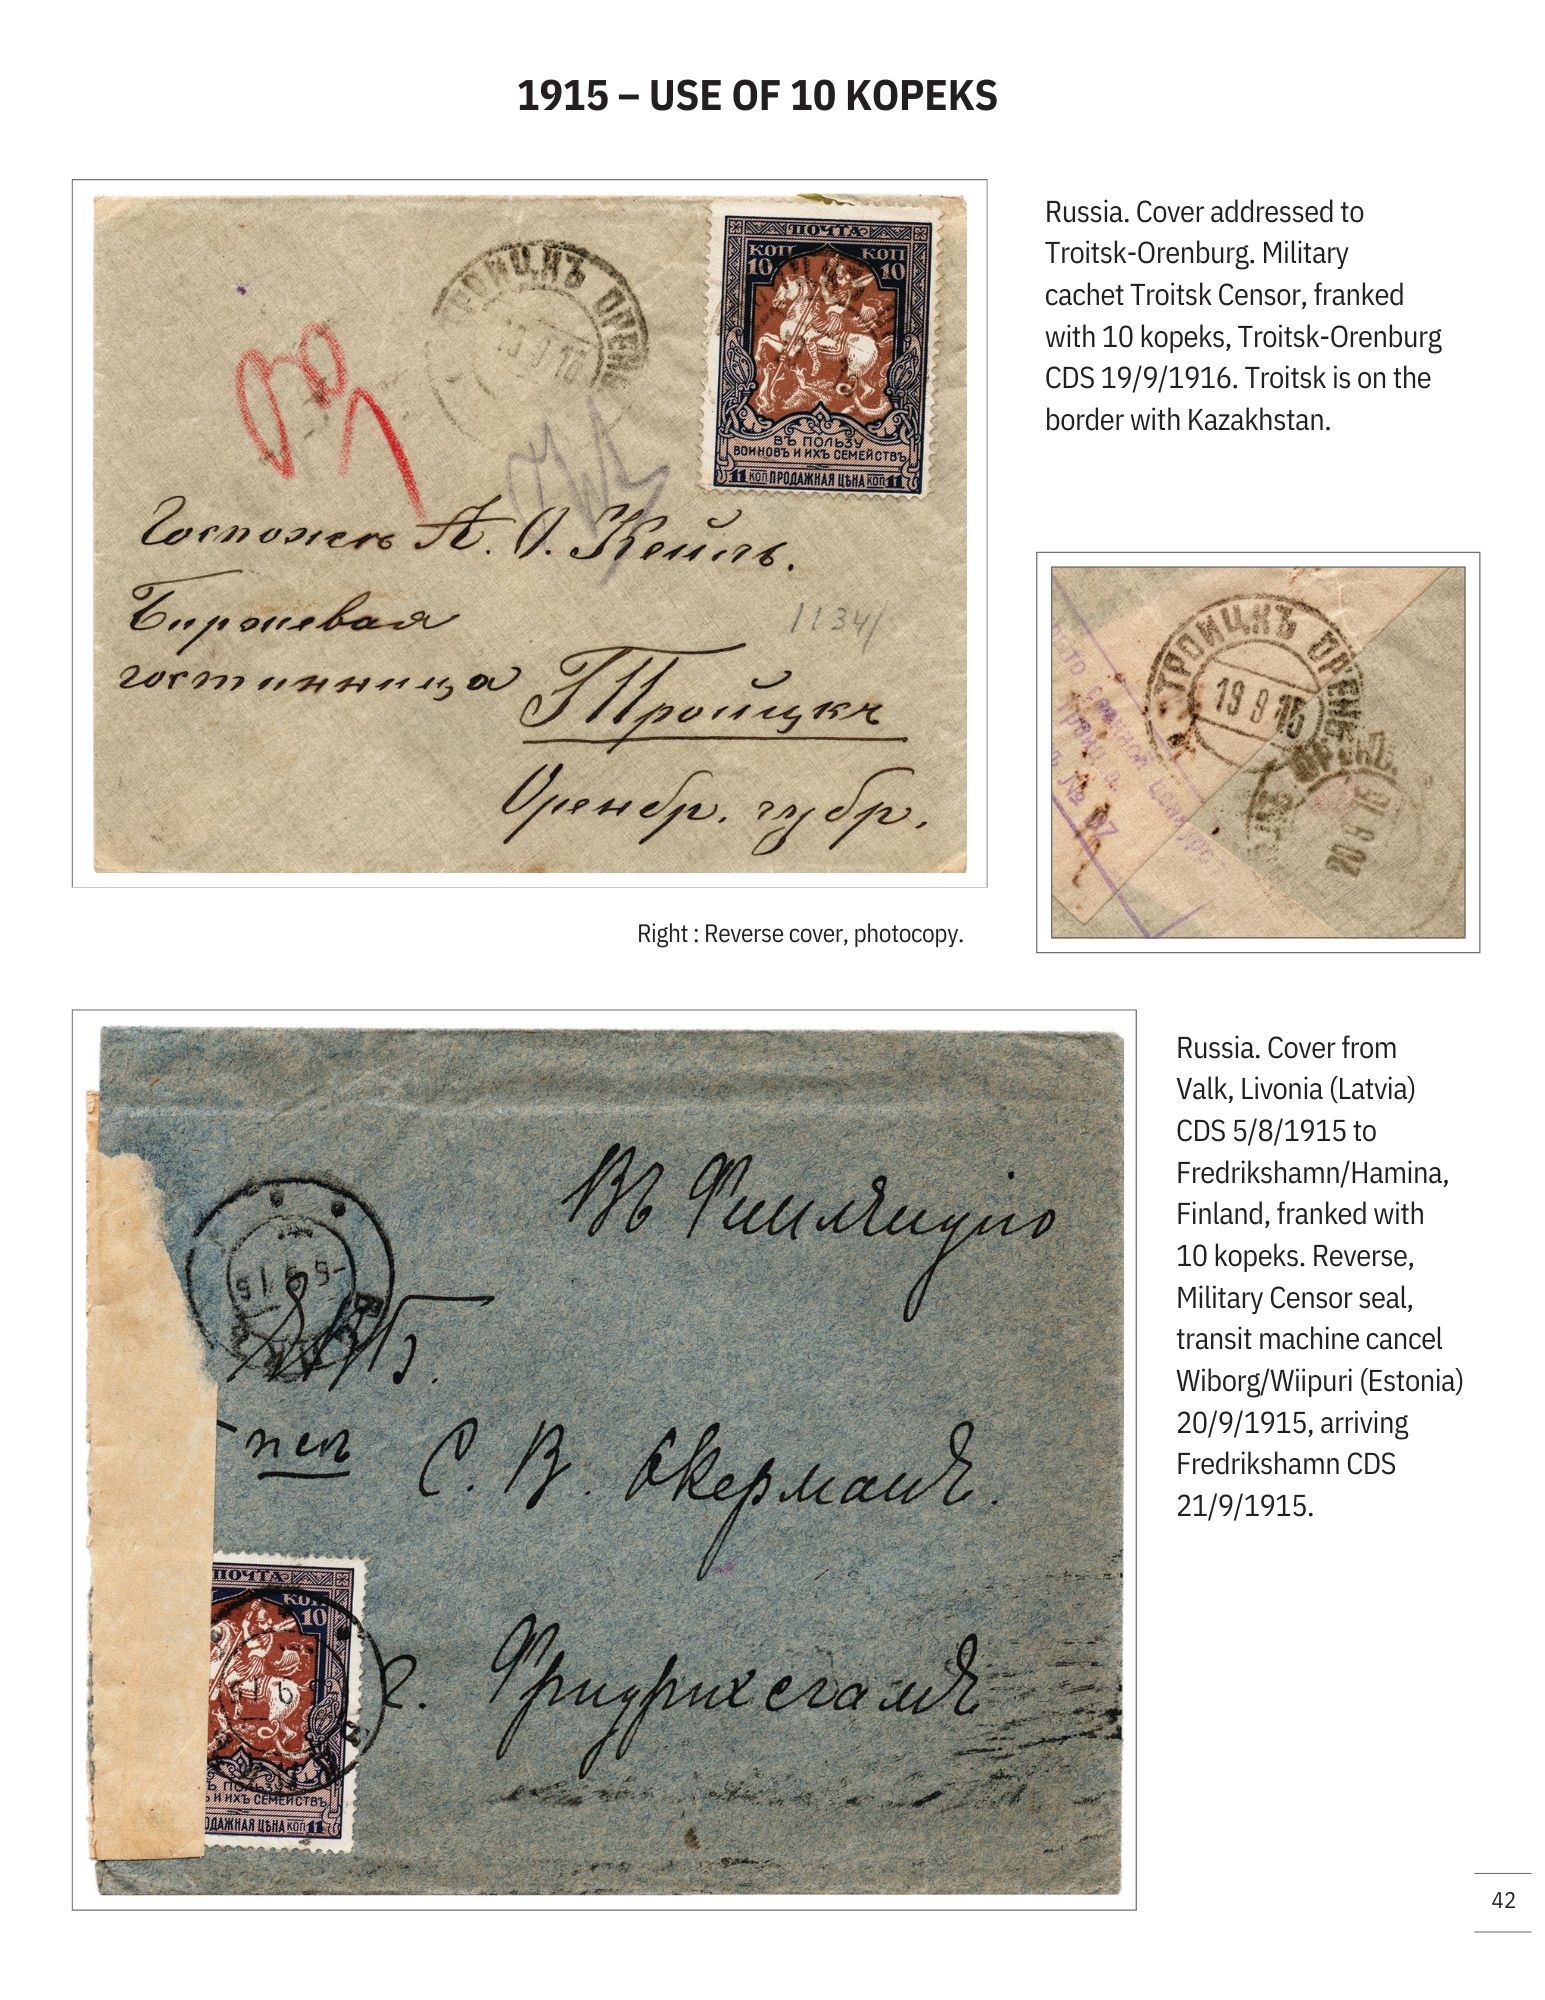 1915 – USE OF 10 KOPEKS
ТРОИЦКЪ ОРЕНБ
19 9 16
ПОЧТА
КОП 10
КОП 10
ВЪ ПОЛЬЗУ
ВОИНОВЪ И ИХЪ СЕМЕЙСТВЪ
11 КОП ПРОДАЖНАЯ ЦѢНА КОП 11
Госпожѣ А. О. Кейль.
Биржевая
гостинница
1134/
Тройцкъ
Оренбр. губр.
Russia. Cover addressed to
Troitsk-Orenburg. Military
cachet Troitsk Censor, franked
with 10 kopeks, Troitsk-Orenburg
CDS 19/9/1916. Troitsk is on the
border with Kazakhstan.
ТРОИЦКЪ ОРЕНБ
19 9 16
ОРЕНБ.
20 9 16
№ 07
Right : Reverse cover, photocopy.
Въ Финляндію
5 9 15
С. В. Окерманъ.
ПОЧТА
КОП
10
Ъ ПОЛЬЗУ
Ъ И ИХЪ СЕМЕЙСТВЪ
ОДАЖНАЯ ЦѢНА КОП 11
г. Фридрихсгамъ
Russia. Cover from
Valk, Livonia (Latvia)
CDS 5/8/1915 to
Fredrikshamn/Hamina,
Finland, franked with
10 kopeks. Reverse,
Military Censor seal,
transit machine cancel
Wiborg/Wiipuri (Estonia)
20/9/1915, arriving
Fredrikshamn CDS
21/9/1915.
42